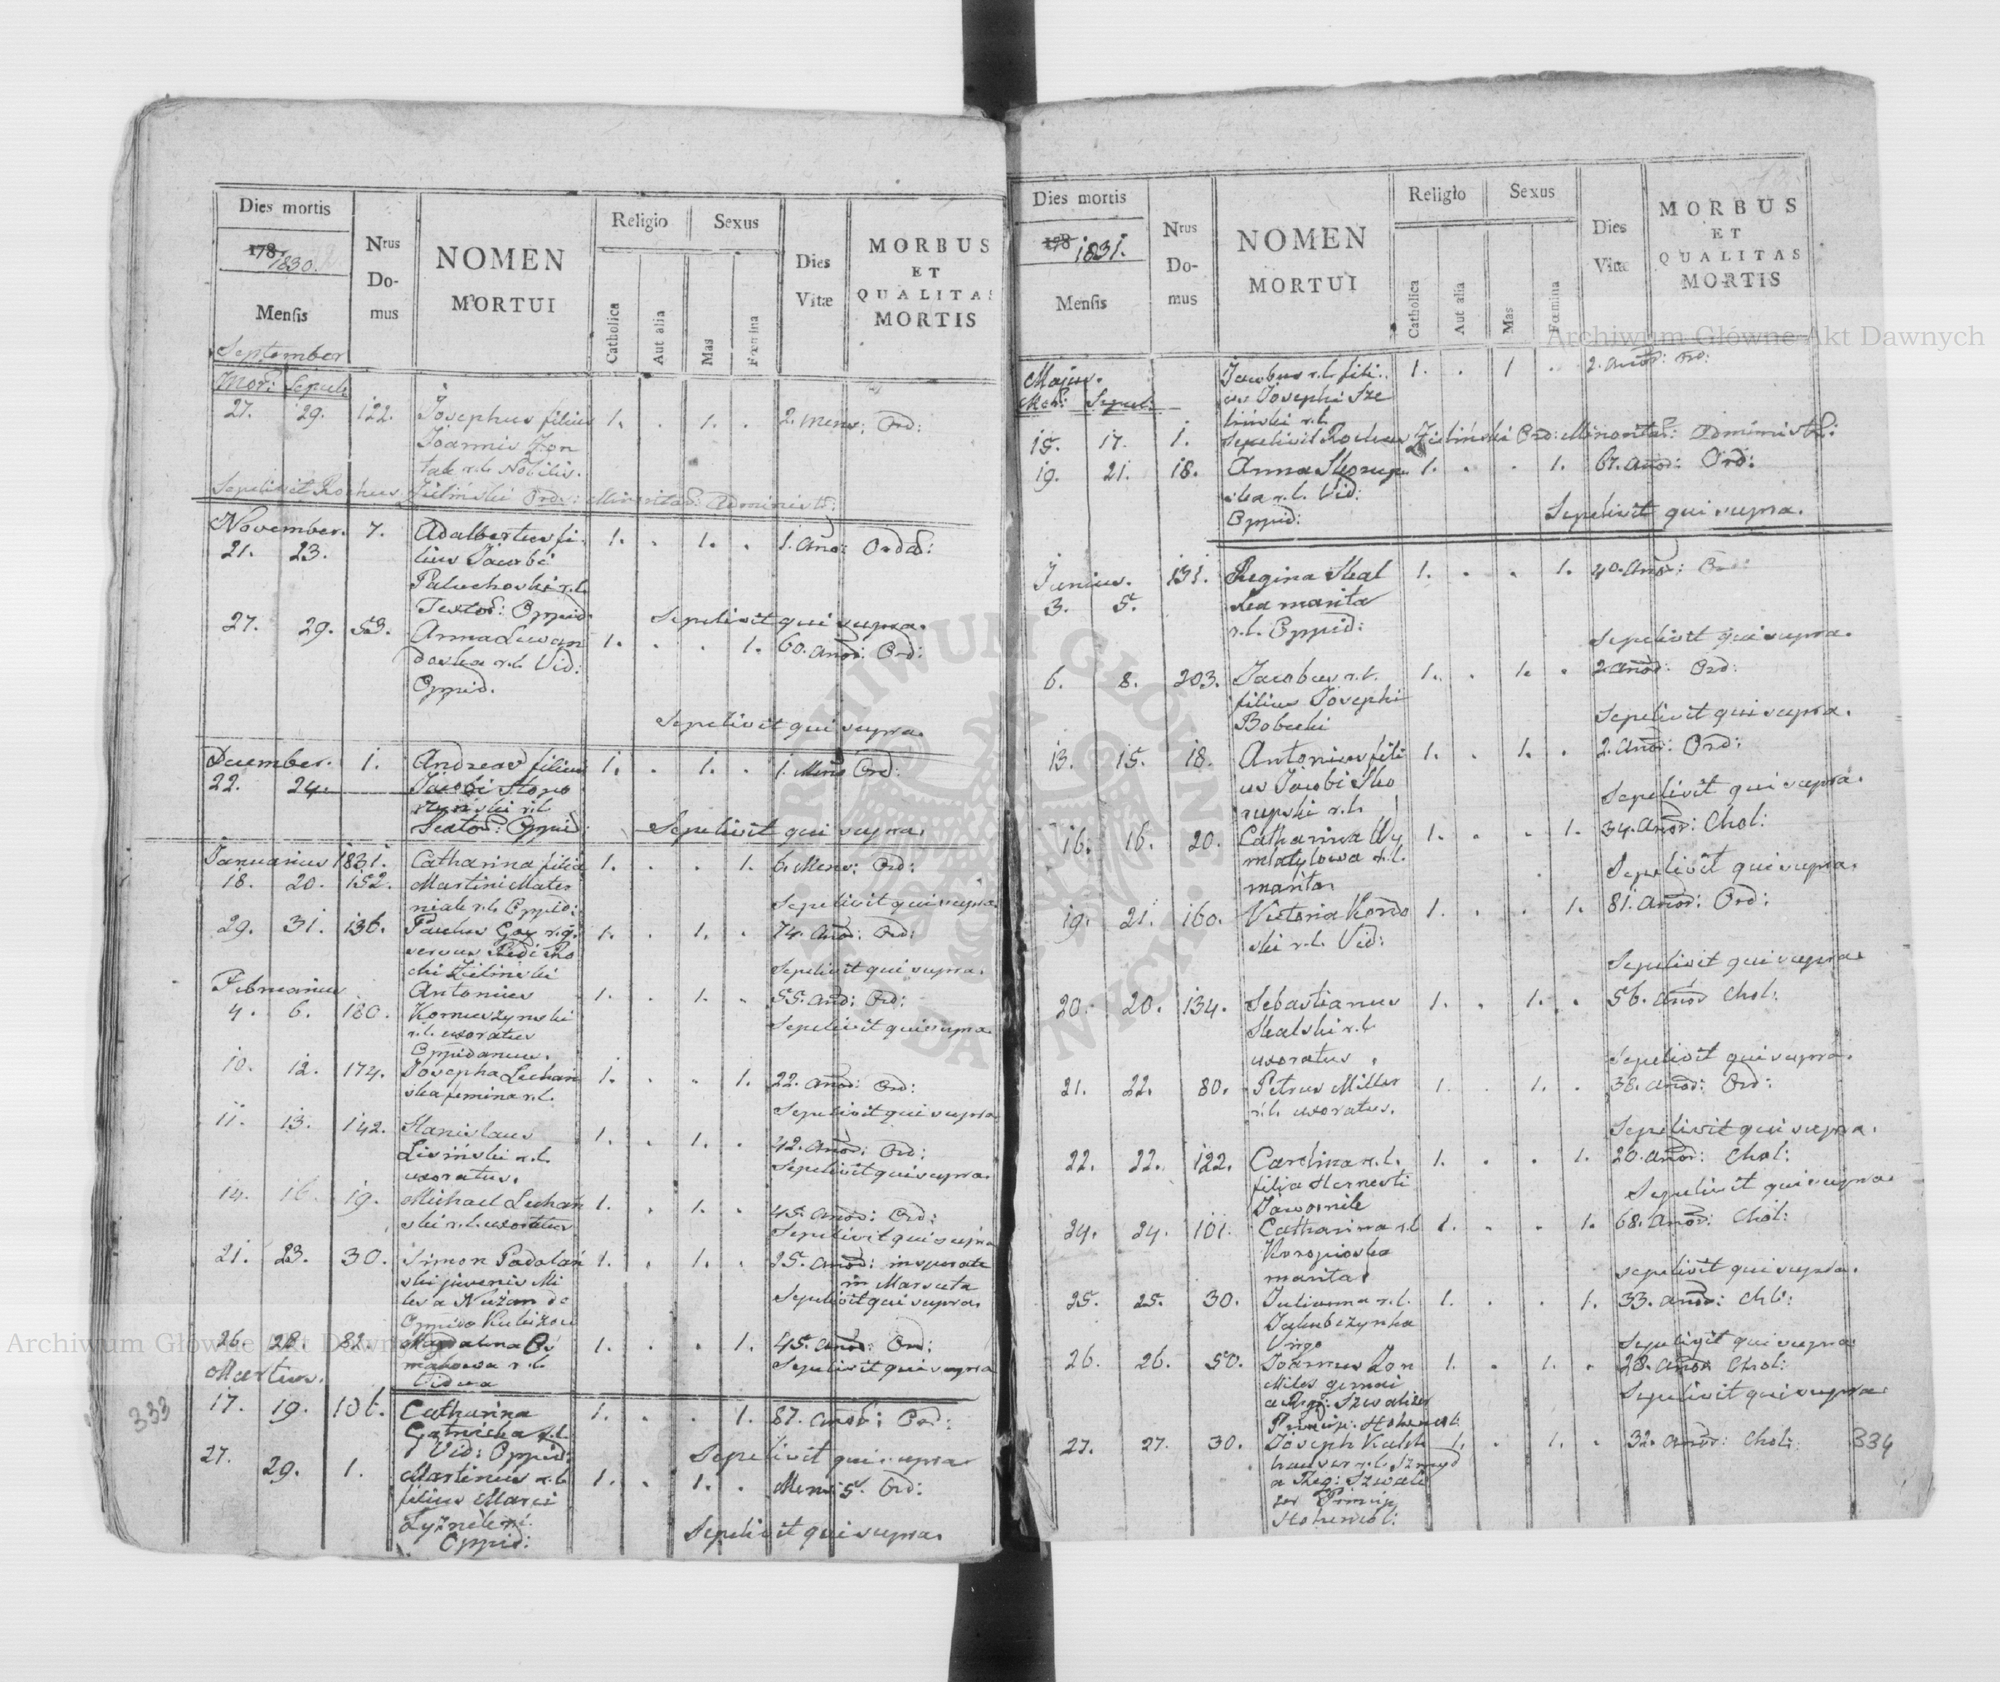 Dies mortis
1781 1830.
Mensis
Nrus Do- mus
NOMEN
MORTUI
Religio
Catholica
Aut alia
Sexus
Mas
Fœmina
Dies Vitæ
MORBUS
ET
QUALITAS
MORTIS
September
Mor: Sepul:
27. 29. 122. Josephus filius 1. . 1. . 2. Mens: Ord:
Joannis Zon
tak r.l. Nobilis.
Sepelivit Rochus Zieliński Ord: Minorita: Administ:
November. 7. Adalbertus fi 1. . 1. . 1. Ano: Ord:
21. 23. lius Jacobi
Paluchoski r.l.
Textor: Oppid:
Sepelivit qui supra.
27. 29. 53. Anna Lewan 1. . . 1. 60. Anor: Ord:
doska r.l. Vid:
Oppid.
Sepelivit qui supra.
December. 1. Andreas filius 1. . 1. . 1. Mens Ord:
22. 24. Jacobi Skopo
rzyński r.l.
Sextor: Oppid:
Sepelivit qui supra.
Januarius 1831. Catharina filia 1. . . 1. 6. Mens: Ord:
18. 20. 152. Martini Mater
niak r.l. Oppid:
Sepelivit qui supra
29. 31. 136. Paulus Goy r.g. 1. . 1. . 74. Anor: Ord:
servus Redi Ro
chi Zieliński
Sepelivit qui supra.
Februarius
4. 6. 180. Antonius 1. . 1. . 55. Anor: Ord:
Korneszynski
r.l. uxoratus
Oppidanus.
Sepelivit qui supra
10. 12. 174. Josepha Lechan 1. . . 1. 22. Anor: Ord:
ska femina r.l.
Sepelivit qui supra
11. 13. 142. Stanislaus 1. . 1. . 42. Anor: Ord:
Lisiński r.l.
uxoratus.
Sepelivit qui supra.
14. 16. 19. Michael Lechan 1. . 1. . 45. Anor: Ord:
ski r.l. uxoratus
Sepelivit qui supra
21. 23. 30. Simon Podolań 1. . 1. . 25. Anor:
ski juvenis Mi
les a
Oppido
in Marscuta
Sepelivit qui supra.
26. 28. 82. Magdalena 1. . . 1. 45. Anor: Ord:
makowa r.l.
Vidua
Sepelivit qui supra
Martius.
17. 19. 106. Catharina 1. . . 1. 87. Anor: Ord:
r.l.
Vid: Oppid:
Sepelivit qui supra
27. 29. 1. Martinus r.l. 1. . 1. . Mens 5. Ord:
filius Marci
Oppid:
Sepelivit qui supra.
333
Dies mortis
178 1831.
Mensis
Nrus Do- mus
NOMEN
MORTUI
Religio
Catholica
Aut alia
Sexus
Mas
Fœmina
Dies Vitæ
MORBUS
ET
QUALITAS
MORTIS
Majus.
Mor: Sepul:
15. 17. 1. Jacobus r.l. fili 1. . 1 . 2. Anor: Ord:
us Josephi Sze
liński r.l.
Sepelivit Rochus Zieliński Ord: Minorita: Administ:
19. 21. 18. Anna Skorup 1. . . 1. 67. Anor: Ord:
ska r.l. Vid:
Oppid:
Sepelivit qui supra.
Junius. 131. Regina Skal 1. . . 1. 40. Anor: Ord:
3. 5. ska marita
r.l. Oppid:
Sepelivit qui supra.
6. 8. 203. Jacobus r.l. 1. . 1. . 2 Anor: Ord:
filius Josephi
Bobecki
Sepelivit qui supra.
13. 15. 18. Antonius fili 1. . 1. . 2. Anor: Ord:
us Jacobi Sko
rupski r.l.
Sepelivit qui supra.
16. 16. 20. Catharina Wy 1. . . 1. 34. Anor: Chol:
matylowa r.l.
marita
Sepelivit qui supra.
19. 21. 160. Victoria Kordo 1. . . 1. 81. Anor: Ord:
ski r.l. Vid:
Sepelivit qui supra
20. 20. 134. Sebastianus 1. . 1. . 56. Anor Chol:
Skalski r.l.
uxoratus.
Sepelivit qui supra.
21. 22. 80. Petrus Miller 1. . 1. . 38. Anor: Ord:
r.l. uxoratus.
Sepelivit qui supra.
22. 22. 122. Carolina r.l. 1. . . 1. 20. Anor: Chol:
filia Hernesti
Jawornik
Sepelivit qui supra
24. 24. 101. Catharina r.l. 1. . . 1. 68. Anor: Chol:
Koropioska
marita
Sepelivit qui supra.
25. 25. 30. Julianna r.l. 1. . . 1. 33. Anor: Chl:
Jakubczynka
Virgo
Sepelivit qui supra
26. 26. 50. Joannes Zon 1. . 1. . 28. Anor Chol:
Miles
a Reg: Szwalizer
Princip: Hohenzol:
Sepelivit qui supra
27. 27. 30. Joseph 1. . 1. . 32. Anor: Chol:
r.l.
a Reg: Szwali
zer Princip
Hohenzol:
334
Archiwum Główne Akt Dawnych
Archiwum Główne Akt Dawnych
ARCHIWUM GŁÓWNE AKT DAWNYCH